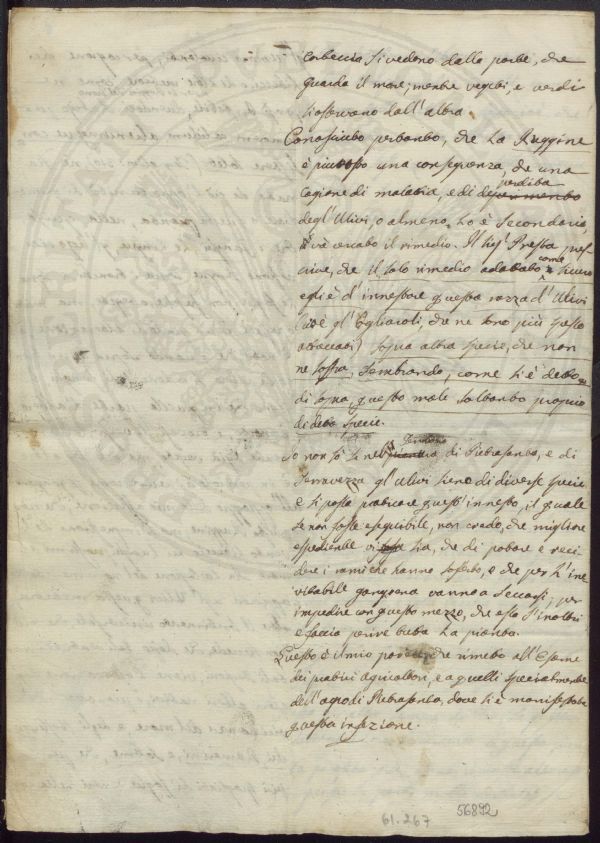 corbeccia si vedono dalla parte, che
guarda il mare; mentre vegeti, e verdi
si osservano dall'altra.
Conosciuto pertanto, che la Ruggine
è piuttosto una conseguenza, che una
cagione di malattia, e di perdita
degl'Ulivi, o almeno, lo è Secondaria
si vè cercato il rimedio. Il Sig.r Presta pres-
crive, che il solo rimedio adattato, come sicuro
egli è d'innestare questa razza d'Ulivi
(cioè gl'Ogliaroli, che ne sono più spesso
attaccati) sopra altra specie, che non
ne soffra, sembrando, come si è detto
di sopra, questo male soltanto proprio
di detta specie.
Io non sò se nel Territorio di Pietrasanta, e di
Serravezza gl'Ulivi sieno di diverse specie
e si possa praticare quest'innesto, il quale
se non fosse eseguibile, non credo, che migliore
espediente vi sia, che di potare e reci
dere i rami che hanno sofferto, e che per l'ine
vitabile gangrena vanno a seccarsi, per
impedire con questo mezzo, che essa s'inoltri
e faccia perire tutta la pianta.
Questo è il mio parere, che rimetto all'Esame
dei pratici agricoltori, e a quelli specialmente
dell'agro di Pietrasanta, dove si è manifestata
questa infezione.
61.267
56892